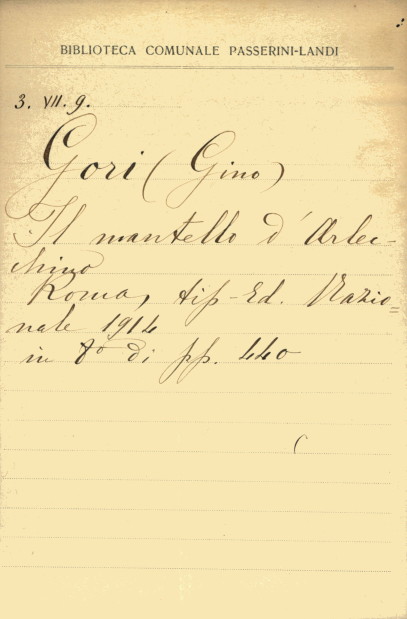 BIBLIOTECA COMUNALE PASSERINI-LANDI
3. VII. 9.
Gori (Gino)
Il mantello d'Arlec-
chino
Roma, tip-Ed. Nazio=
nale 1914
in 8° di pp. 440